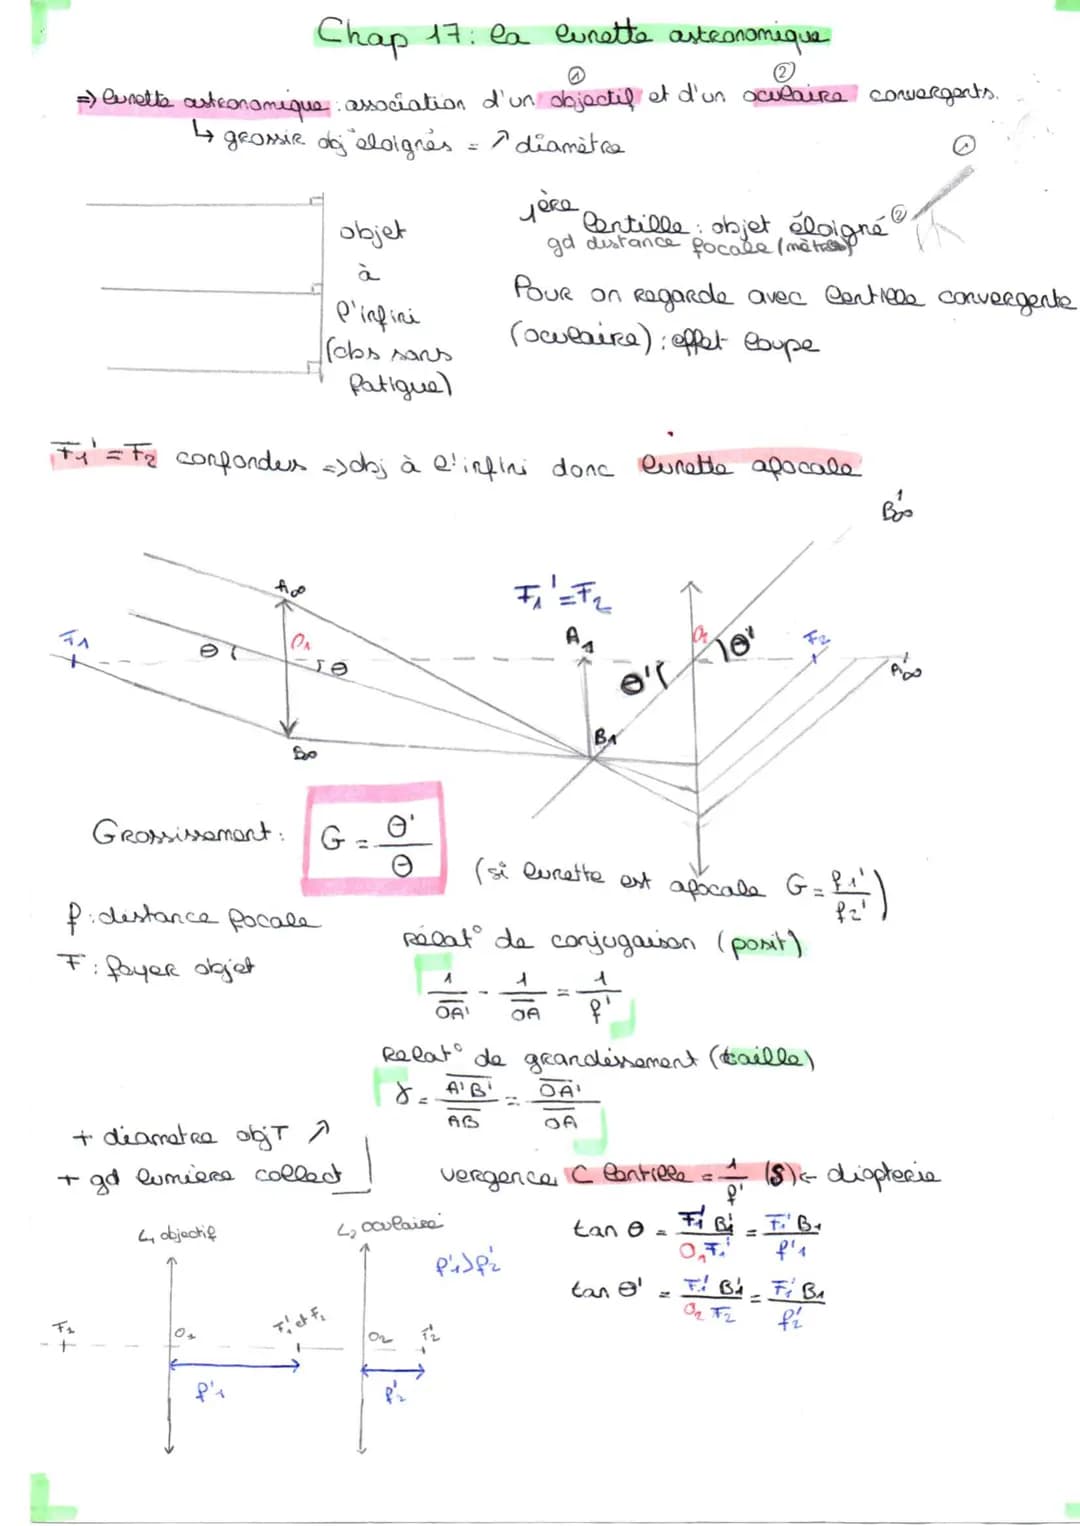 Chap 17: la lunette astronomique
① ②
=> lunette astronomique : association d'un objectif et d'un oculaire convergents.
↳ grossir obj éloignés = ↗ diamètre
①
②
objet
à
l'infini
(obs sans
fatigue)
1ère lentille : objet éloigné
gd distance focale (mètres)
Pour on regarde avec lentille convergente
(oculaire) : effet loupe
F1' = F2 confondus => obj à l'infini donc lunette afocale
B'∞
A∞
F1' = F2
F1
θ
O1
θ
A1
θ'
O2
θ'
F2
A'∞
B1
B∞
Grossissement : G = θ' / θ
(si lunette est afocale G = f1' / f2')
f : distance focale
F : foyer objet
Relat° de conjugaison (posit)
1/OA' - 1/OA = 1/f'
Relat° de grandissement (taille)
γ = A'B' / AB = OA' / OA
+ diametre objT ↗
+ gd lumiere collect
vergence C lentille = 1/f' (δ) ← dioptrie
tan θ = F1' B1 / O1F1' = F1' B1 / f'1
tan θ' = F1' B1 / O2 F2 = F1' B1 / f2'
L1 objectif
L2 oculaire
f'1 > f'2
F1
O1
F1' et F2
O2
F2'
f'1
f'2